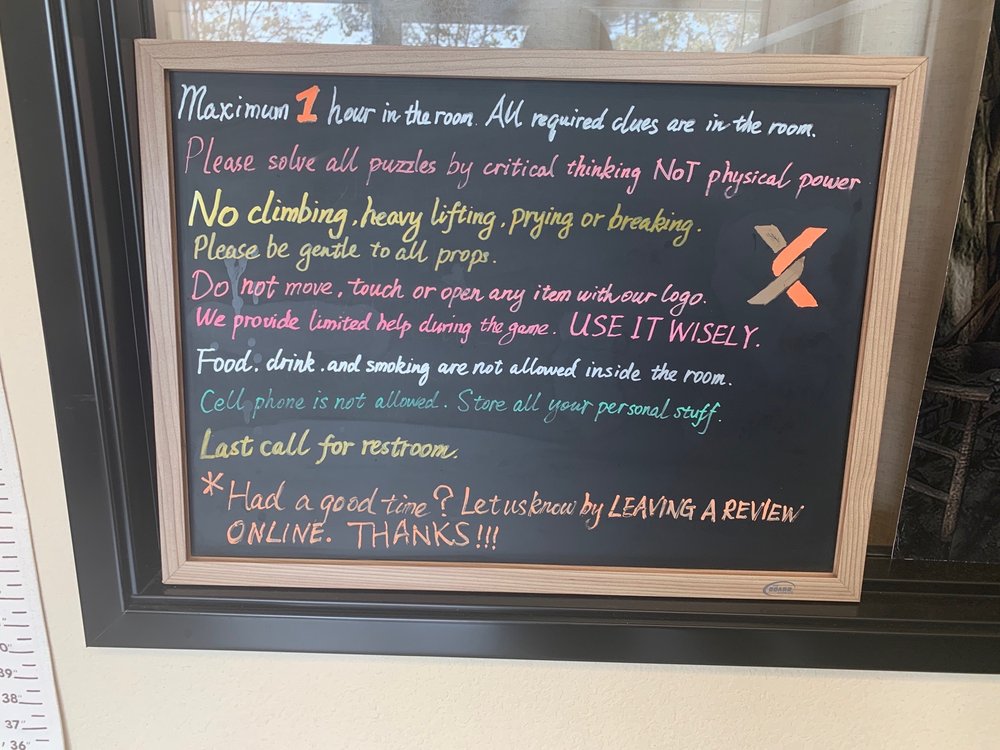 Maximum 1 hour in the room. All required clues are in the room.
Please solve all puzzles by critical thinking NOT physical power
No climbing, heavy lifting, prying or breaking.
Please be gentle to all props.
Do not move, touch or open any item with our logo.
We provide limited help during the game. USE IT WISELY.
Food, drink, and smoking are not allowed inside the room.
Cell phone is not allowed. Store all your personal stuff.
Last call for restroom.
* Had a good time? Let us know by LEAVING A REVIEW
ONLINE. THANKS!!!
BOARD
39"
38"
37"
36"